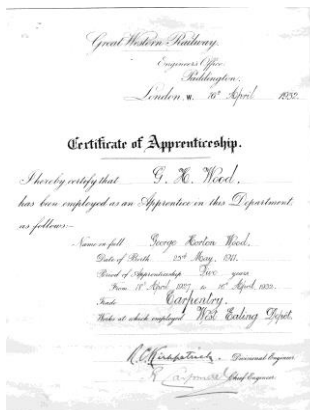 Great Western Railway.
Engineers Office
Paddington.
London, W. 16th April 1932.
Certificate of Apprenticeship.
I hereby certify that G. H. Wood.
has been employed as an Apprentice in this Department,
as follows:-
Name in full George Horton Wood.
Date of Birth 25th May, 1911.
Period of Apprenticeship Five years
From 18th April 1927 to 16th April, 1932.
Trade Carpentry.
Works at which employed West Ealing Depôt.
R. C. Kirkpatrick Divisional Engineer.
Chief Engineer